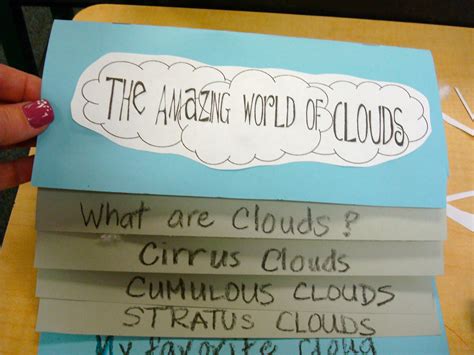 THE AMAZING WORLD OF CLOUDS
What are Clouds?
Cirrus Clouds
CUMULOUS CLOUDS
STRATUS CLOUDS
My favorite Cloud